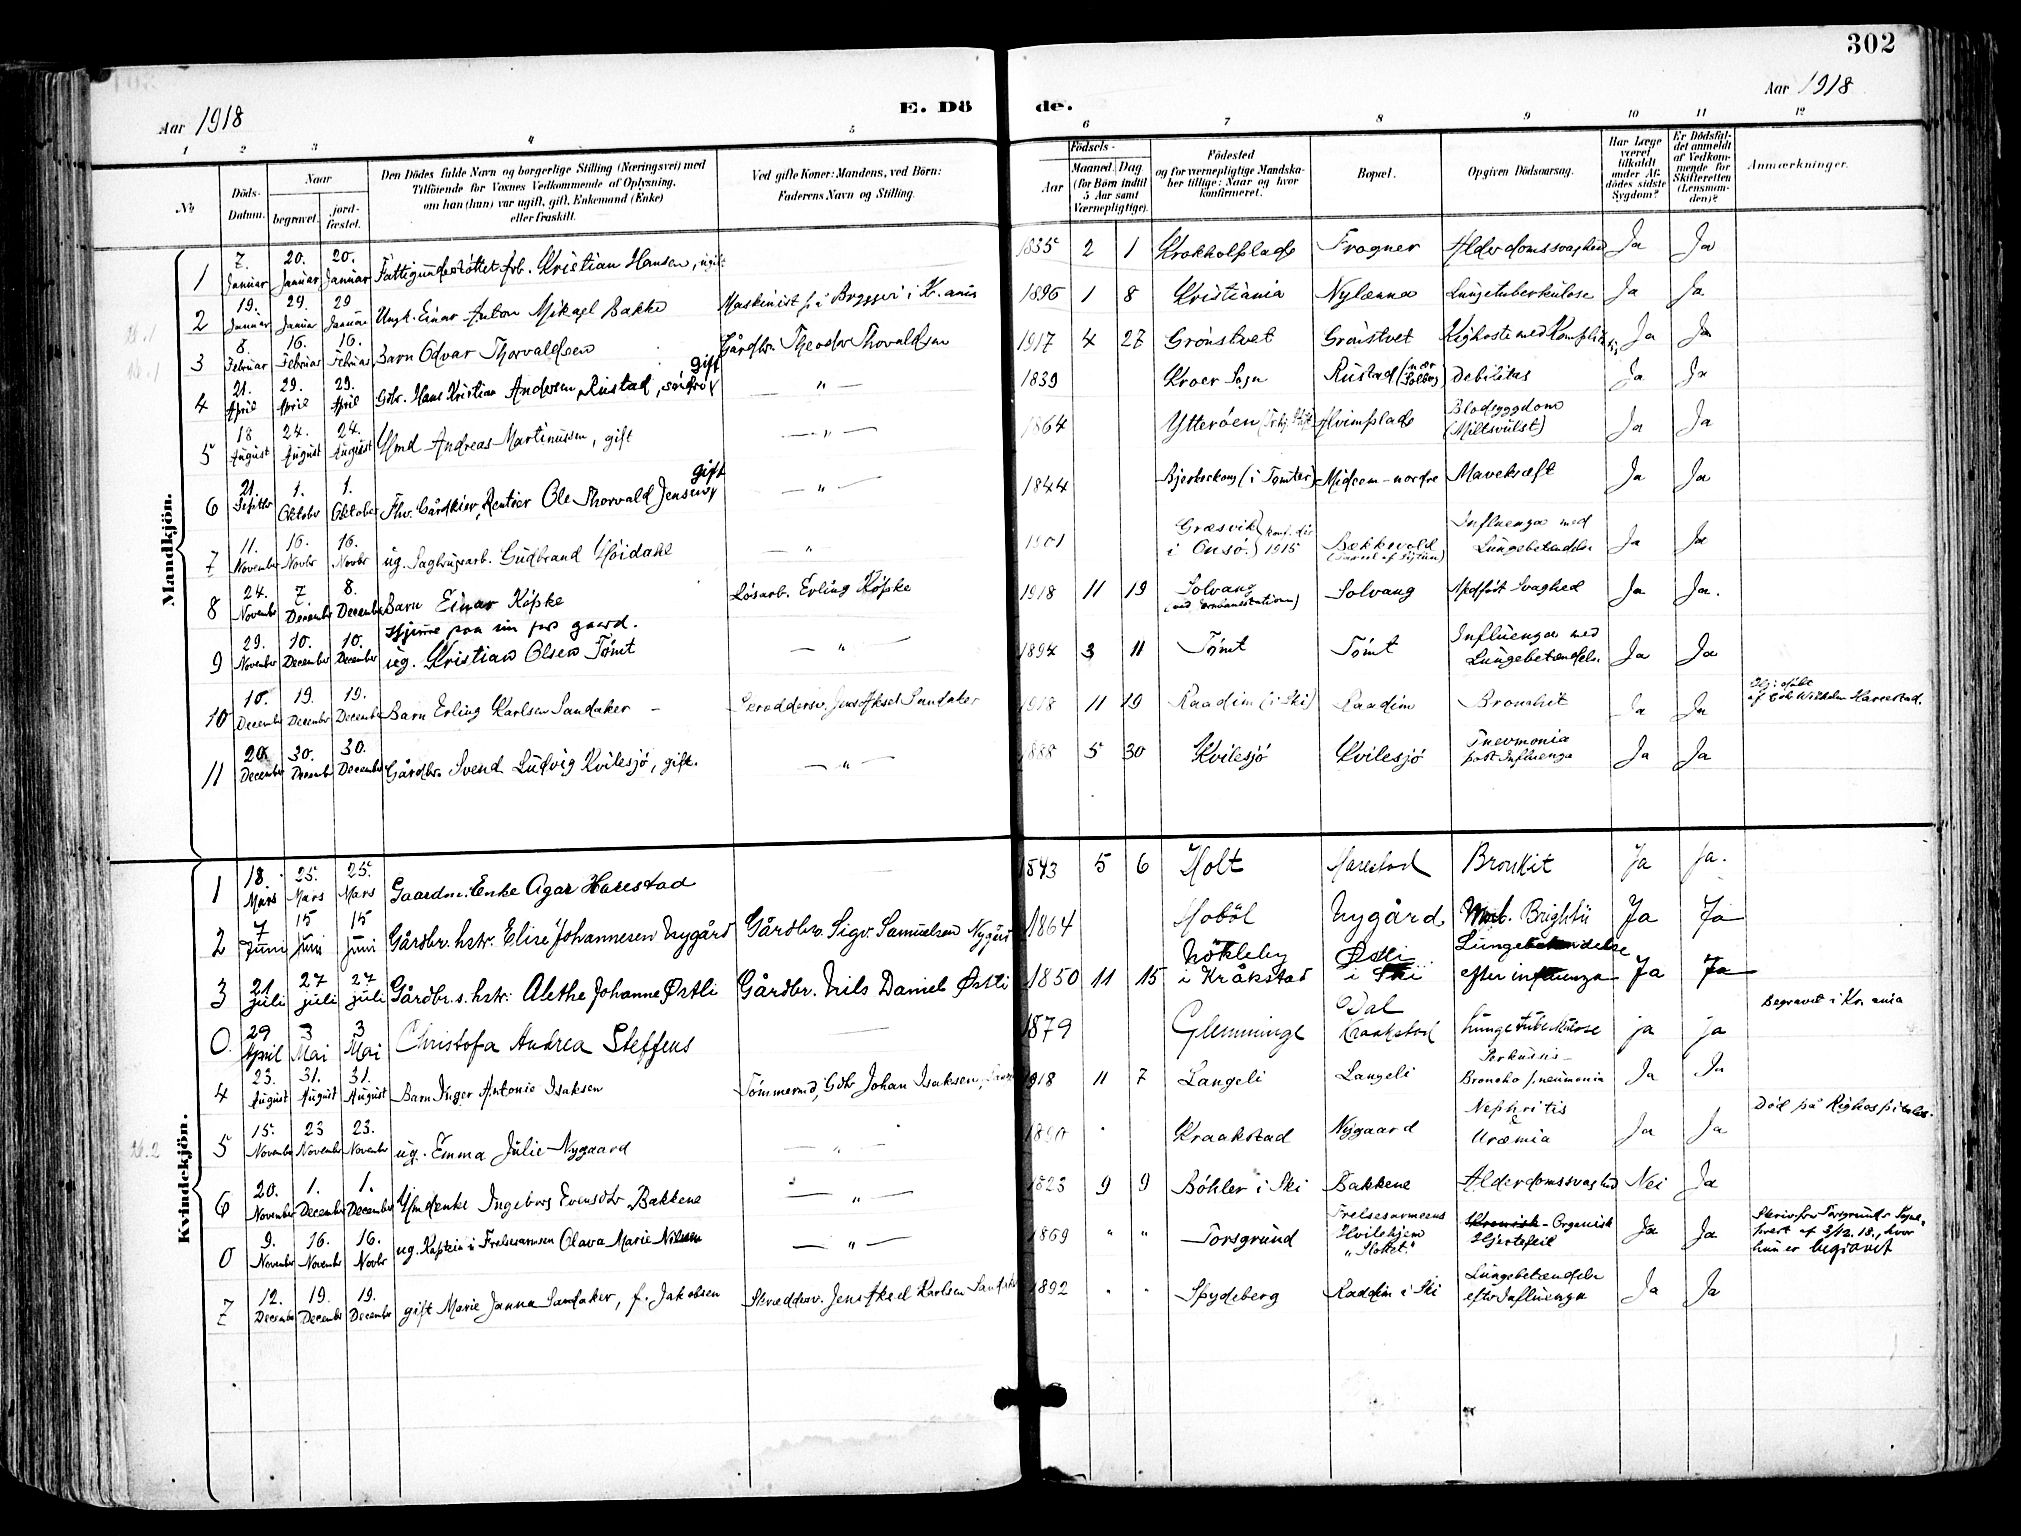 302
Aar 1918
E. Dö de.
Aar 1918
1 2 3 4 5 6 7 8 9 10 11 12
No
Döds-Datum.
Naar
begravet.
jord-fæstet.
Den Dödes fulde Navn og borgerlige Stilling (Næringsvei) med
Tilföiende for Voxnes Vedkommende af Oplysning,
om han (hun) var ugift, gift, Enkemand (Enke)
eller fraskilt.
Ved gifte Koner: Mandens, ved Börn:
Faderens Navn og Stilling.
Födsels-
Aar
Maaned. Dag.
(for Börn indtil
5 Aar samt
Værnepligtige).
Födested
og for værnepligtige Mandska-
ber tillige: Naar og hvor
konfirmeret.
Bopæl.
Opgiven Dödsaarsag.
Har Læge
været
tilkaldt
under Af-
dödes sidste
Sygdom?
Er Dödsfal-
det anmeldt
af Vedkom-
mende for
Skifteretten
(Lensman-
den)?
Anmærkninger.
Mandkjön.
1 7. Januar 20. Januar 20. Januar Fattigunderstøttet arb. Kristian Hansen, ugift 1835 2 1 Krokholplads Frogner Alderdomssvaghed Ja Ja
2 19. Januar 29. Januar 29 Januar Ungk. Einar Anton Mikael Bakke Maskinist på Bryggeri i Kr.ania 1896 1 8 Kristiania Nylænna Lungetuberkulose Ja Ja
3 8. Februar 16. Februar 16. Februar Barn Odvar Thorvaldsen Gårdbr. Theodor Thorvaldsen 1917 4 27 Grønstvet Grønstvet Kighoste med Ja Ja
4 21. April 29. April 29. April Gbr. Hans Kristian Andersen Rustad, gift — " — 1839 Kroer Sogn Rustad (nær Solberg) Debilitas Ja Ja
5 18 August 24. August 24. August Hmd Andreas Martinussen, gift — " — 1864 Ytterøen Hvimplads Blodsygdom (Miltsvulst) Ja Ja
6 21. Septbr 1. Oktobr 1. Oktober Fhv. Gårdeier, Rentier Ole Thorvald Jensen gift — " — 1844 Bjerkeskog (i Tomter) Midsem-nordre Mavekræft Ja Ja
7 11. November 16. Novbr 16. Novbr ug. Sagbrugsarb. Gudbrand Høidahl — " 1901 Græsvik i Onsø. 1915 Bækkevold Influenza med Lungebetændelse Ja Ja
8 24. Novembr 7. Decembr 8. Decembr Barn Einar Köpke Løsarb. Erling Köpke 1918 11 19 Solvang Solvang Medfødt Svaghed Ja Ja.
9 29. November 10. December 10. December Hjemme paa sin fars gaard. ug. Kristian Olsen Tømt — " — 1894 3 11 Tømt Tømt Influenza med Lungebetændelse Ja Ja
10 10. December 19. December 19. December Barn Erling Karlsen Sandaker Skræddersv. Jens Aksel Sandaker 1918 11 19 Raadim (i Ski) Raadim Bronchit Ja Ja
11 20. December 30. Decembr 30. December Gårdbr. Svend Ludvig Kvilesjø, gift. — " — 1888 5 30 Kvilesjø Kvilesjø Pnevmonia post Influenza Ja Ja
Kvindekjön.
1 18. Mars 25. Mars 25. Mars Gaardm. Enke Agar Harestad 1843 5 6 Holt Harestad Bronkit Ja Ja.
2 7 Juni 15 Juni 15 Juni Gårdbr. hstr. Elise Johannesen Nygård Gårdbr. Sigv. Samuelsen Nygård 1864 Hobøl Nygård Morb. Brightii Ja Ja
3 21 Juli 27 Juli 27 Juli Gårdbr.s. hstr. Alethe Johanne Østli Gårdbr. Nils Daniel Østli 1850 11 15 Nökleby i Kråkstad Østli i Ski Lungebetændelse efter influenza Ja Ja
0. 29 April 3 Mai 3 Mai Christofa Andrea Steffens 1879 Glemminge Dal Kraakstad Lungetuberkulose ja ja Begravet i Kr.ania
4 23. August 31. August 31. August Barn Inger Antonie Isaksen Tømmermd, Gbr Johan Isaksen, 1918 11 7 Langeli Langeli Broncho pneumonia Ja Ja
5 15. November 23 November 23. November ug. Emma Julie Nygaard — " — 1890 Kraakstad Nygaard Nephritis & Uræmia Ja Ja Død på Righospitalet.
6 20. November 1. December 1. December Hmdenke Ingeborg Evensdtr. Bakkene — " — 1823 9 9 Bøhler i Ski Bakkene Alderdomssvaghed Nei Ja
0 9. November 16. Novembr 16. Novbr ug. Kaptein i Frelsesarmeen Olava Marie Nilsen — " — 1869 " " Porsgrund Frelsesarmeens Hvilehjem "Slottet." Kronisk - Organisk Hjertefeil Ja Ja Skriv. fra Porsgrunds Sogne- af 3/12. 18., hvor hun er begravet
7 12. Decembr 19. Decembr 19. Decembr gift Marie Janna Sandaker, f. Jakobsen Skræddersv. Jens Aksel Karlsen Sandaker 1892 Spydeberg Raddim i Ski Lungebetændelse efter Influenza Ja Ja